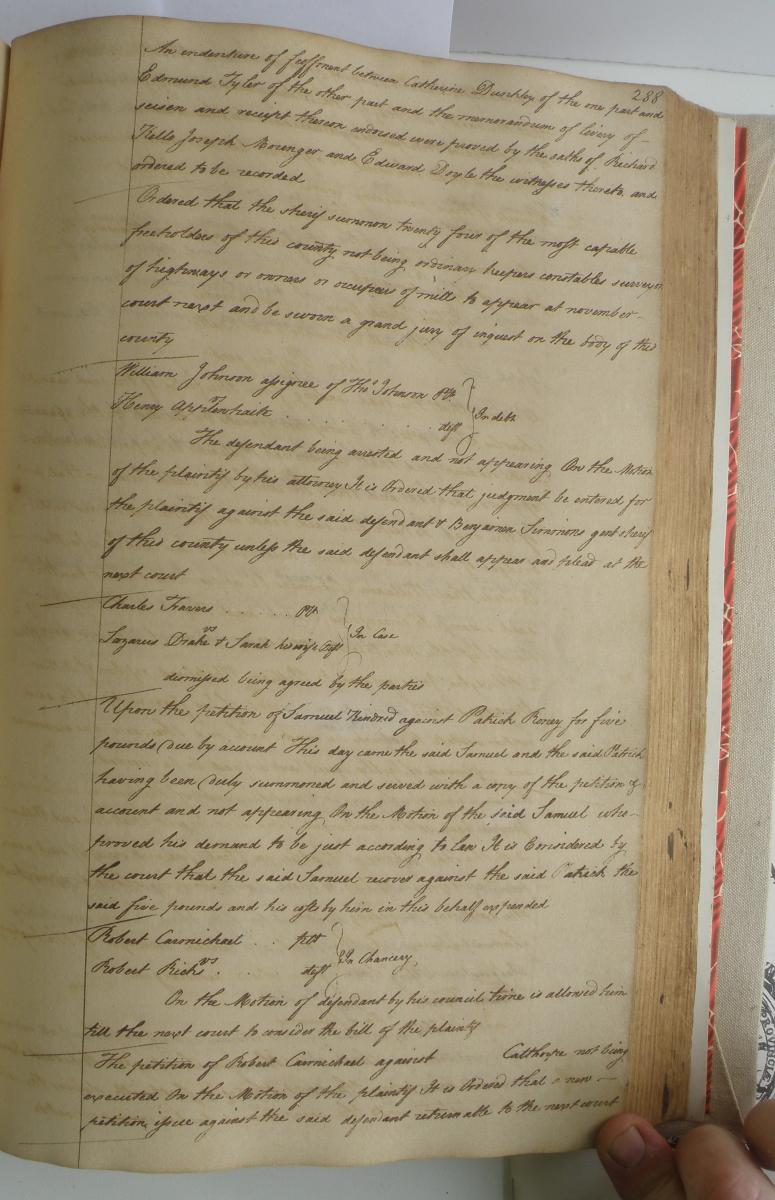 288
An indenture of feoffment between Catherine Dunkley of the one part and
Edmund Tyler of the other part and the memorandum of livery of
seisen and receipt thereon endorsed were proved by the oaths of Richard
Kello Joseph Mounger and Edward Doyle the witnesses thereto and
ordered to be recorded
Ordered that the sherif summon twenty four of the most capable
freeholders of this county not being ordinary keepers constables surveyors
of highways or owners or occupiers of mills to appear at november
court next and be sworn a grand jury of inquest on the body of this
county
William Johnson assignee of Thos Johnson Plt
vs
In debt
Henry Applewhaite deft
The defendant being arrested and not appearing On the Motion
of the plaintif by his attorney It is Ordered that judgment be entered for
the plaintif against the said defendant & Benjamin Simmons gent sherif
of this county unless the said defendant shall appear and plead at the
next court
Charles Travers Plt
vs
In Case
Lazarus Drake & Sarah his wife Defts
dismissed being agreed by the parties
Upon the petition of Samuel Kindred against Patrick Roney for five
pounds due by account This day came the said Samuel and the said Patrick
having been duly summoned and served with a copy of the petition &
account and not appearing On the Motion of the said Samuel who
proved his demand to be just according to Law It is Considered by
the court that the said Samuel recover against the said Patrick the
said five pounds and his costs by him in this behalf expended
Robert Carmichael plt
vs
In Chancery
Robert Ricks deft
On the Motion of defendant by his council time is allowed him
till the next court to consider the bill of the plaintif
The petition of Robert Carmichael against Calthorpe not being
executed On the Motion of the plaintif It is Ordered that a new
petition issue against the said defendant returnable to the next court